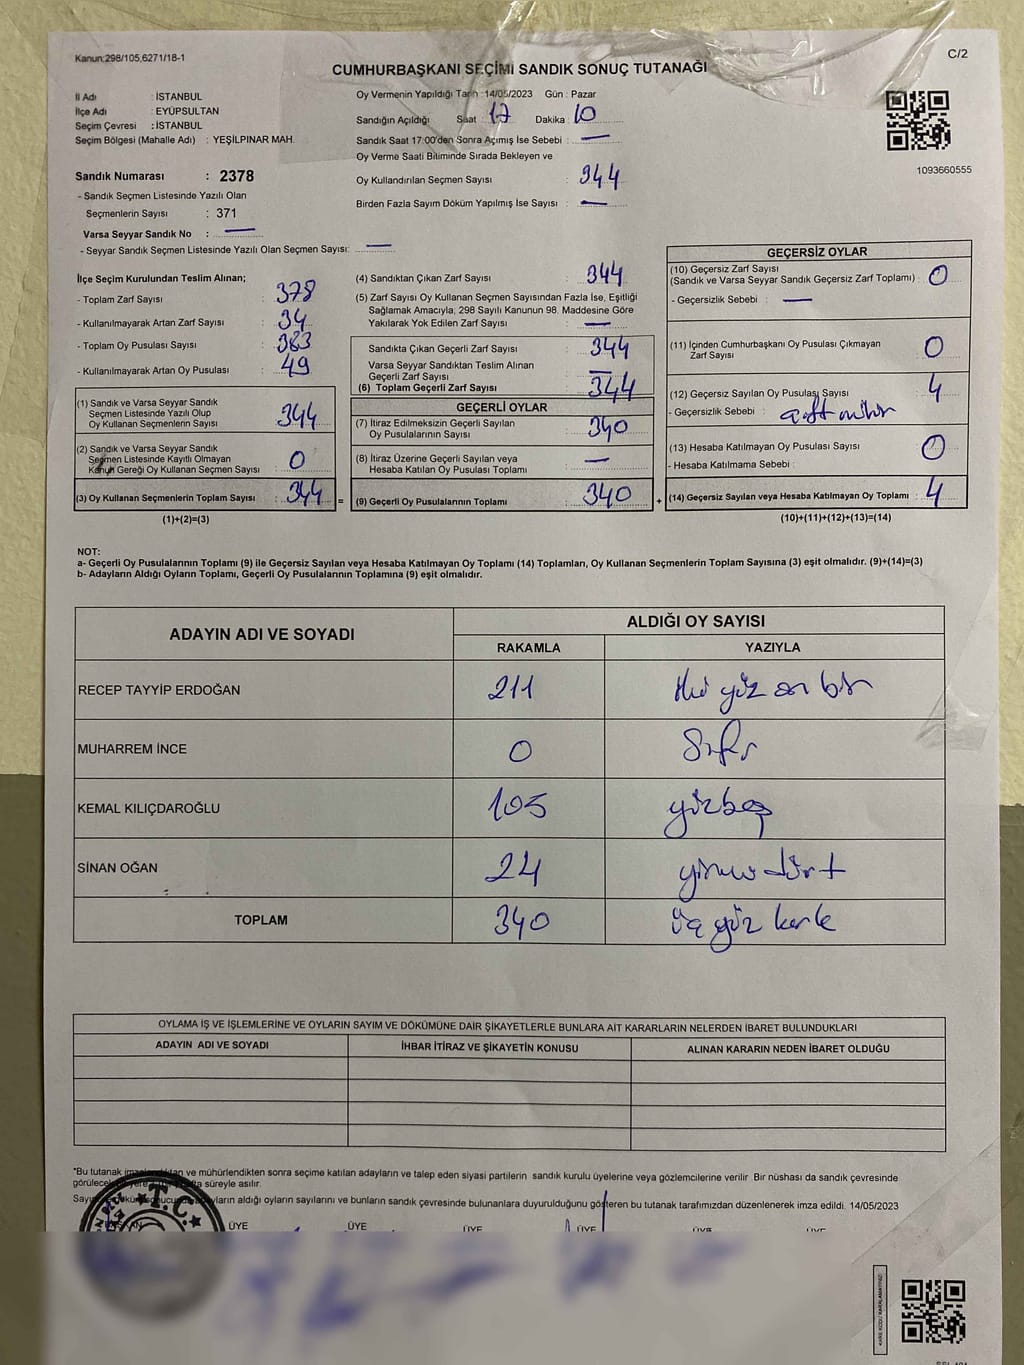 Kanun:298/105,6271/18-1
C/2
CUMHURBAŞKANI SEÇİMİ SANDIK SONUÇ TUTANAĞI
İl Adı : İSTANBUL
İlçe Adı : EYÜPSULTAN
Seçim Çevresi : İSTANBUL
Seçim Bölgesi (Mahalle Adı) : YEŞİLPINAR MAH.
Sandık Numarası : 2378
- Sandık Seçmen Listesinde Yazılı Olan
Seçmenlerin Sayısı : 371
Varsa Seyyar Sandık No : —
- Seyyar Sandık Seçmen Listesinde Yazılı Olan Seçmen Sayısı: —
Oy Vermenin Yapıldığı Tarih :14/05/2023 Gün : Pazar
Sandığın Açıldığı Saat : 17 Dakika : 10
Sandık Saat 17:00'den Sonra Açımış İse Sebebi : —
Oy Verme Saati Bitiminde Sırada Bekleyen ve
Oy Kullandırılan Seçmen Sayısı : 344
Birden Fazla Sayım Döküm Yapılmış İse Sayısı : —
1093660555
İlçe Seçim Kurulundan Teslim Alınan;
- Toplam Zarf Sayısı : 378
- Kullanılmayarak Artan Zarf Sayısı : 34
- Toplam Oy Pusulası Sayısı : 383
- Kullanılmayarak Artan Oy Pusulası : 49
(1) Sandık ve Varsa Seyyar Sandık
Seçmen Listesinde Yazılı Olup
Oy Kullanan Seçmenlerin Sayısı : 344
(2) Sandık ve Varsa Seyyar Sandık
Seçmen Listesinde Kayıtlı Olmayan
Kanun Gereği Oy Kullanan Seçmen Sayısı : 0
(3) Oy Kullanan Seçmenlerin Toplam Sayısı : 344
(1)+(2)=(3)
=
(4) Sandıktan Çıkan Zarf Sayısı : 344
(5) Zarf Sayısı Oy Kullanan Seçmen Sayısından Fazla İse, Eşitliği
Sağlamak Amacıyla, 298 Sayılı Kanunun 98. Maddesine Göre
Yakılarak Yok Edilen Zarf Sayısı : —
Sandıkta Çıkan Geçerli Zarf Sayısı : 344
Varsa Seyyar Sandıktan Teslim Alınan
Geçerli Zarf Sayısı : —
(6) Toplam Geçerli Zarf Sayısı : 344
GEÇERLİ OYLAR
(7) İtiraz Edilmeksizin Geçerli Sayılan
Oy Pusulalarının Sayısı : 340
(8) İtiraz Üzerine Geçerli Sayılan veya
Hesaba Katılan Oy Pusulası Toplamı : —
(9) Geçerli Oy Pusulalarının Toplamı : 340
+
GEÇERSİZ OYLAR
(10) Geçersiz Zarf Sayısı
(Sandık ve Varsa Seyyar Sandık Geçersiz Zarf Toplamı) : 0
- Geçersizlik Sebebi : —
(11) İçinden Cumhurbaşkanı Oy Pusulası Çıkmayan
Zarf Sayısı : 0
(12) Geçersiz Sayılan Oy Pusulası Sayısı : 4
- Geçersizlik Sebebi :
(13) Hesaba Katılmayan Oy Pusulası Sayısı : 0
- Hesaba Katılmama Sebebi :
(14) Geçersiz Sayılan veya Hesaba Katılmayan Oy Toplamı : 4
(10)+(11)+(12)+(13)=(14)
NOT:
a- Geçerli Oy Pusulalarının Toplamı (9) ile Geçersiz Sayılan veya Hesaba Katılmayan Oy Toplamı (14) Toplamları, Oy Kullanan Seçmenlerin Toplam Sayısına (3) eşit olmalıdır. (9)+(14)=(3)
b- Adayların Aldığı Oyların Toplamı, Geçerli Oy Pusulalarının Toplamına (9) eşit olmalıdır.
ADAYIN ADI VE SOYADI ALDIĞI OY SAYISI
RAKAMLA YAZIYLA
RECEP TAYYİP ERDOĞAN 211 iki yüz on bir
MUHARREM İNCE 0 Sıfır
KEMAL KILIÇDAROĞLU 105 yüzbeş
SİNAN OĞAN 24 yirmi dört
TOPLAM 340 üç yüz kırk
OYLAMA İŞ VE İŞLEMLERİNE VE OYLARIN SAYIM VE DÖKÜMÜNE DAİR ŞİKAYETLERLE BUNLARA AİT KARARLARIN NELERDEN İBARET BULUNDUKLARI
ADAYIN ADI VE SOYADI İHBAR İTİRAZ VE ŞİKAYETİN KONUSU ALINAN KARARIN NEDEN İBARET OLDUĞU
"Bu tutanak imzalandıktan ve mühürlendikten sonra seçime katılan adayların ve talep eden siyasi partilerin sandık kurulu üyelerine veya gözlemcilerine verilir. Bir nüshası da sandık çevresinde
görülecek bir yere hafta süreyle asılır.
Sayım döküm sonucunda adayların aldığı oyların sayılarını ve bunların sandık çevresinde bulunanlara duyurulduğunu gösteren bu tutanak tarafımızdan düzenlenerek imza edildi. 14/05/2023
BAŞKAN ÜYE ÜYE ÜYE ÜYE ÜYE ÜYE
T.C.